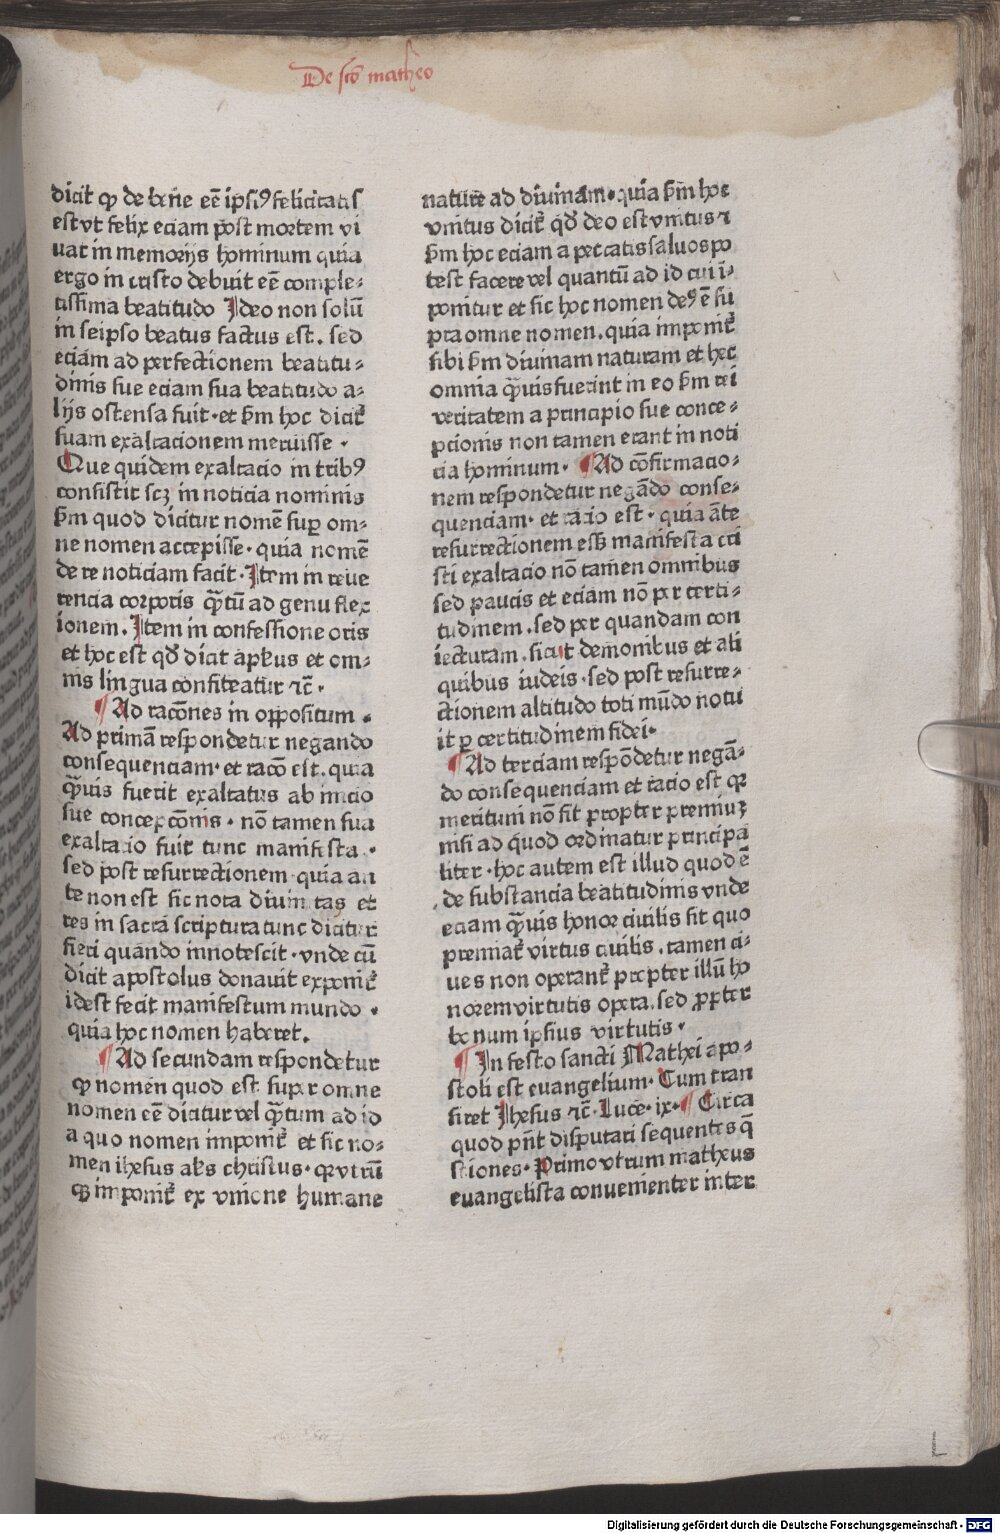 De sco matheo
dicit ꝙ de bene eē ipsiꝰ felicitatis
est vt felix eciam post mortem vi
uat in memorijs hominum quia
ergo in cristo debuit eē comple⸗
tissima beatitudo Ideo non solū
in seipso beatus factus est. sed
eciam ad perfectionem beatitu⸗
dinis sue eciam sua beatitudo a⸗
lijs ostensa fuit· et ẜm hoc dicit̄
suam exaltacionem meruisse ·
Que quidem exaltacio in tribꝰ
consistit scꝫ in noticia nominis
ẜm quod dicitur nomē suꝑ om⸗
ne nomen accepisse· quia nomē
de re noticiam facit· Item in reue
rencia corporis ꝙ̄tū ad genu flex
ionem. Item in confessione oris
et hoc est qđ dicit apl̄us et om⸗
nis lingua confiteatur ⁊c̄·
¶ Ad racōnes in oppositum ·
Ad primā respondetur negando
consequenciam· et racō est. quia
ꝙ̄uis fuerit exaltatus ab inicio
sue concepcōnis · nō tamen sua
exaltacio fuit tunc manifesta ·
sed post resurrectionem· quia an
te non est sic nota diuinitas et
res in sacra scriptura tunc dicitur
fieri quando innotescit· vnde cū
dicit apostolus donauit exponit̄
idest fecit manifestum mundo ·
quia hoc nomen haberet.
¶ Ad secundam respondetur
ꝙ nomen quod est super omne
nomen eē dicitur vel ꝙ̄tum ad id
a quo nomen imponit̄ et sic no⸗
men ihesus al's christus· qr vtrū
ꝙ imponit̄ ex vnione humane
nature ad diuinam· quia ẜm hoc
vnitus dicit̄ qđ deo est vnitus ⁊
ẜm hoc eciam a peccatis saluos po
test facere vel quantū ad id cui i⸗
ponitur et sic hoc nomen deꝰ ē su
pra omne nomen. quia imponit̄
sibi ẜm diuinam naturam et hec
omnia ꝙ̄uis fuerint in eo ẜm rei
veritatem a principio sue conce⸗
pcionis non tamen erant in noti
cia hominum· ¶ Ad cōfirmacio⸗
nem respondetur negādo conse⸗
quenciam· et racio est· quia āte
resurrectionem esß manifesta cri
sti exaltacio nō tamen omnibus
sed paucis et eciam nō per certi⸗
tudinem. sed per quandam con
iecturam. sicut demonibus et ali
quibus iudeis· sed post resurre⸗
ctionem altitudo toti mūdo notu
it ꝑ certitudinem fidei·
¶ Ad terciam respōdetur negā⸗
do consequenciam et racio est qr
meritum nō fit propter premiuꝫ
nisi ad quod ordinatur principa
liter· hoc autem est illud quod ē
de substancia beatitudinis vnde
eciam ꝙ̄uis honor ciuilis sit quo
premiat̄ virtus ciuilis. tamen ci⸗
ues non operant̄ propter illū ho
norem virtutis opera. sed ꝓpter
bonum ipsius virtutis·
¶ In festo sancti Mathei apo⸗
stoli est euangelium· Cum tran
siret Ihesus ⁊c̄· Luce· ix· ¶ Circa
quod pn̄t disputari sequentes q̄
stiones· Primo vtrum matheus
euangelista conuenienter inter
Digitalisierung gefördert durch die Deutsche Forschungsgemeinschaft - DFG